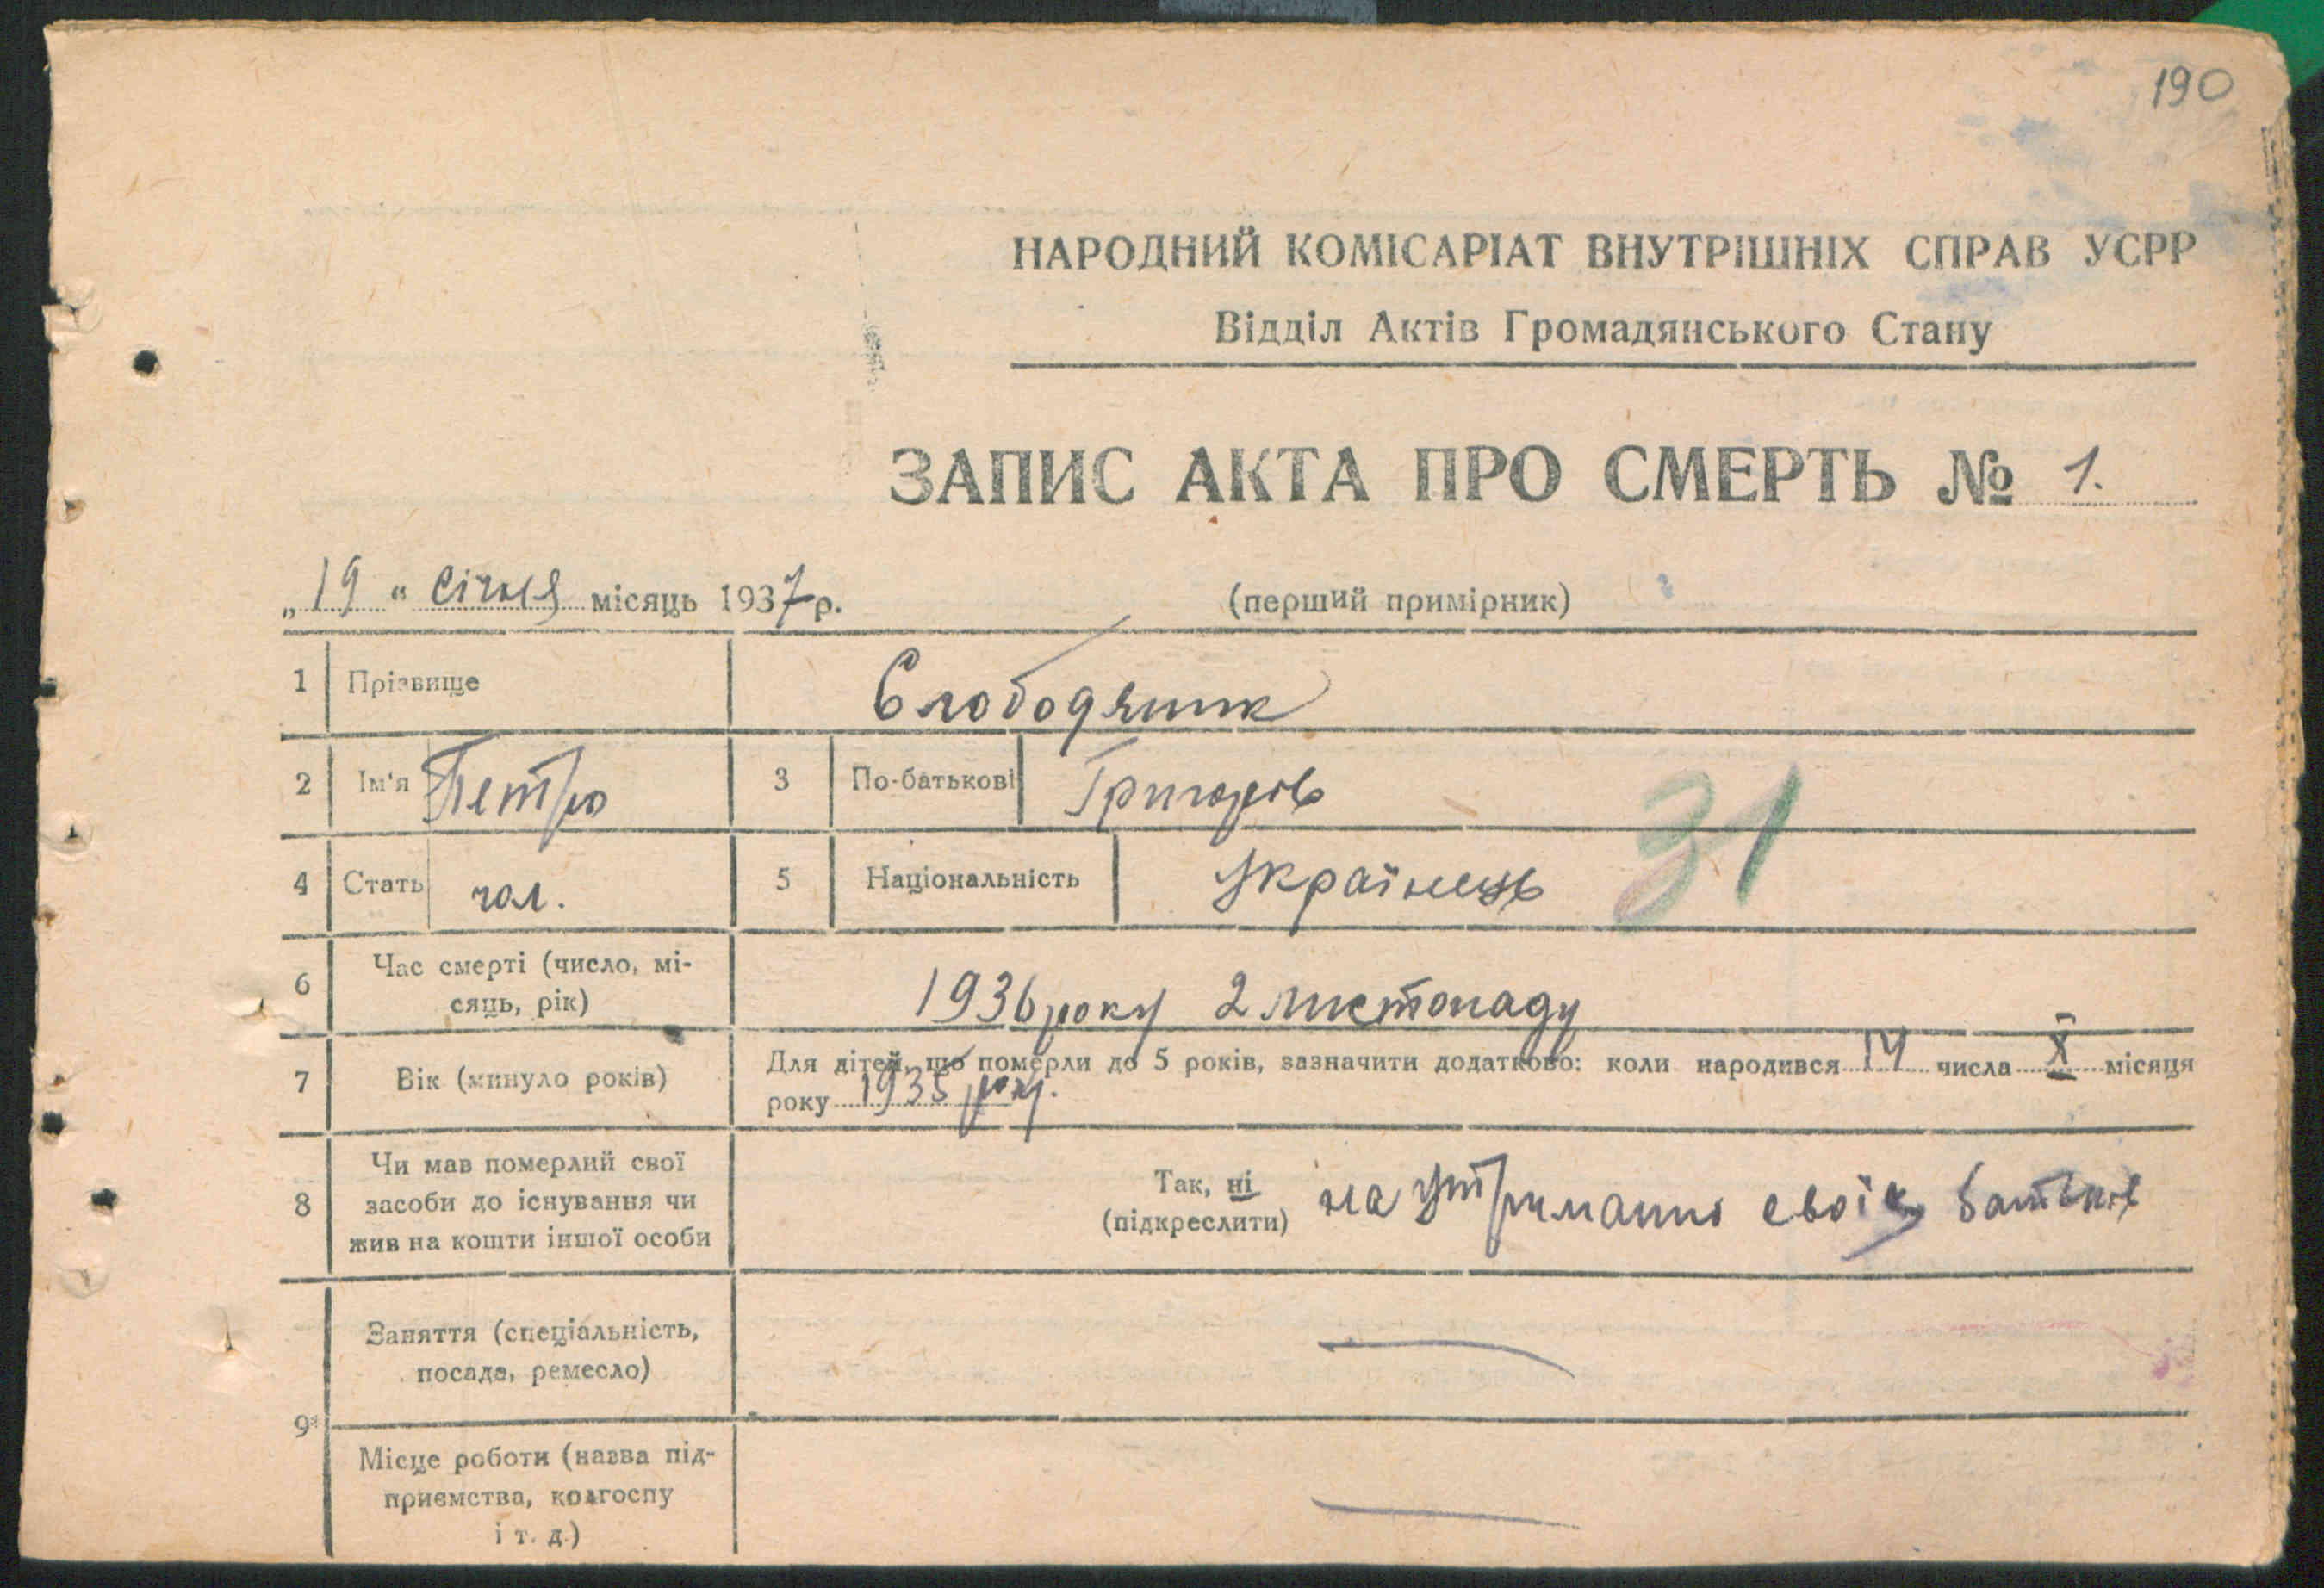 190
НАРОДНИЙ КОМІСАРІАТ ВНУТРІШНІХ СПРАВ УСРР
Відділ Актів Громадянського Стану
ЗАПИС АКТА ПРО СМЕРТЬ № 1.
„19“ січня місяць 1937 р.
(перший примірник)
1 Прізвище Слободяник
2 Ім'я Петро 3 По-батькові Григоров
31
4 Стать чол. 5 Національність Українець
6 Час смерті (число, мі-
сяць, рік)
1936 року 2 листопаду
7 Вік (минуло років)
Для дітей, що померли до 5 років, зазначити додатково: коли народився числа X місяця
року 1935 року.
8 Чи мав померлий свої
засоби до існування чи
жив на кошти іншої особи
Так, ні
(підкреслити)
на утриманні своїх батьків
9 Заняття (спеціальність,
посада, ремесло)
Місце роботи (назва під-
приємства, колгоспу
і т. д.)